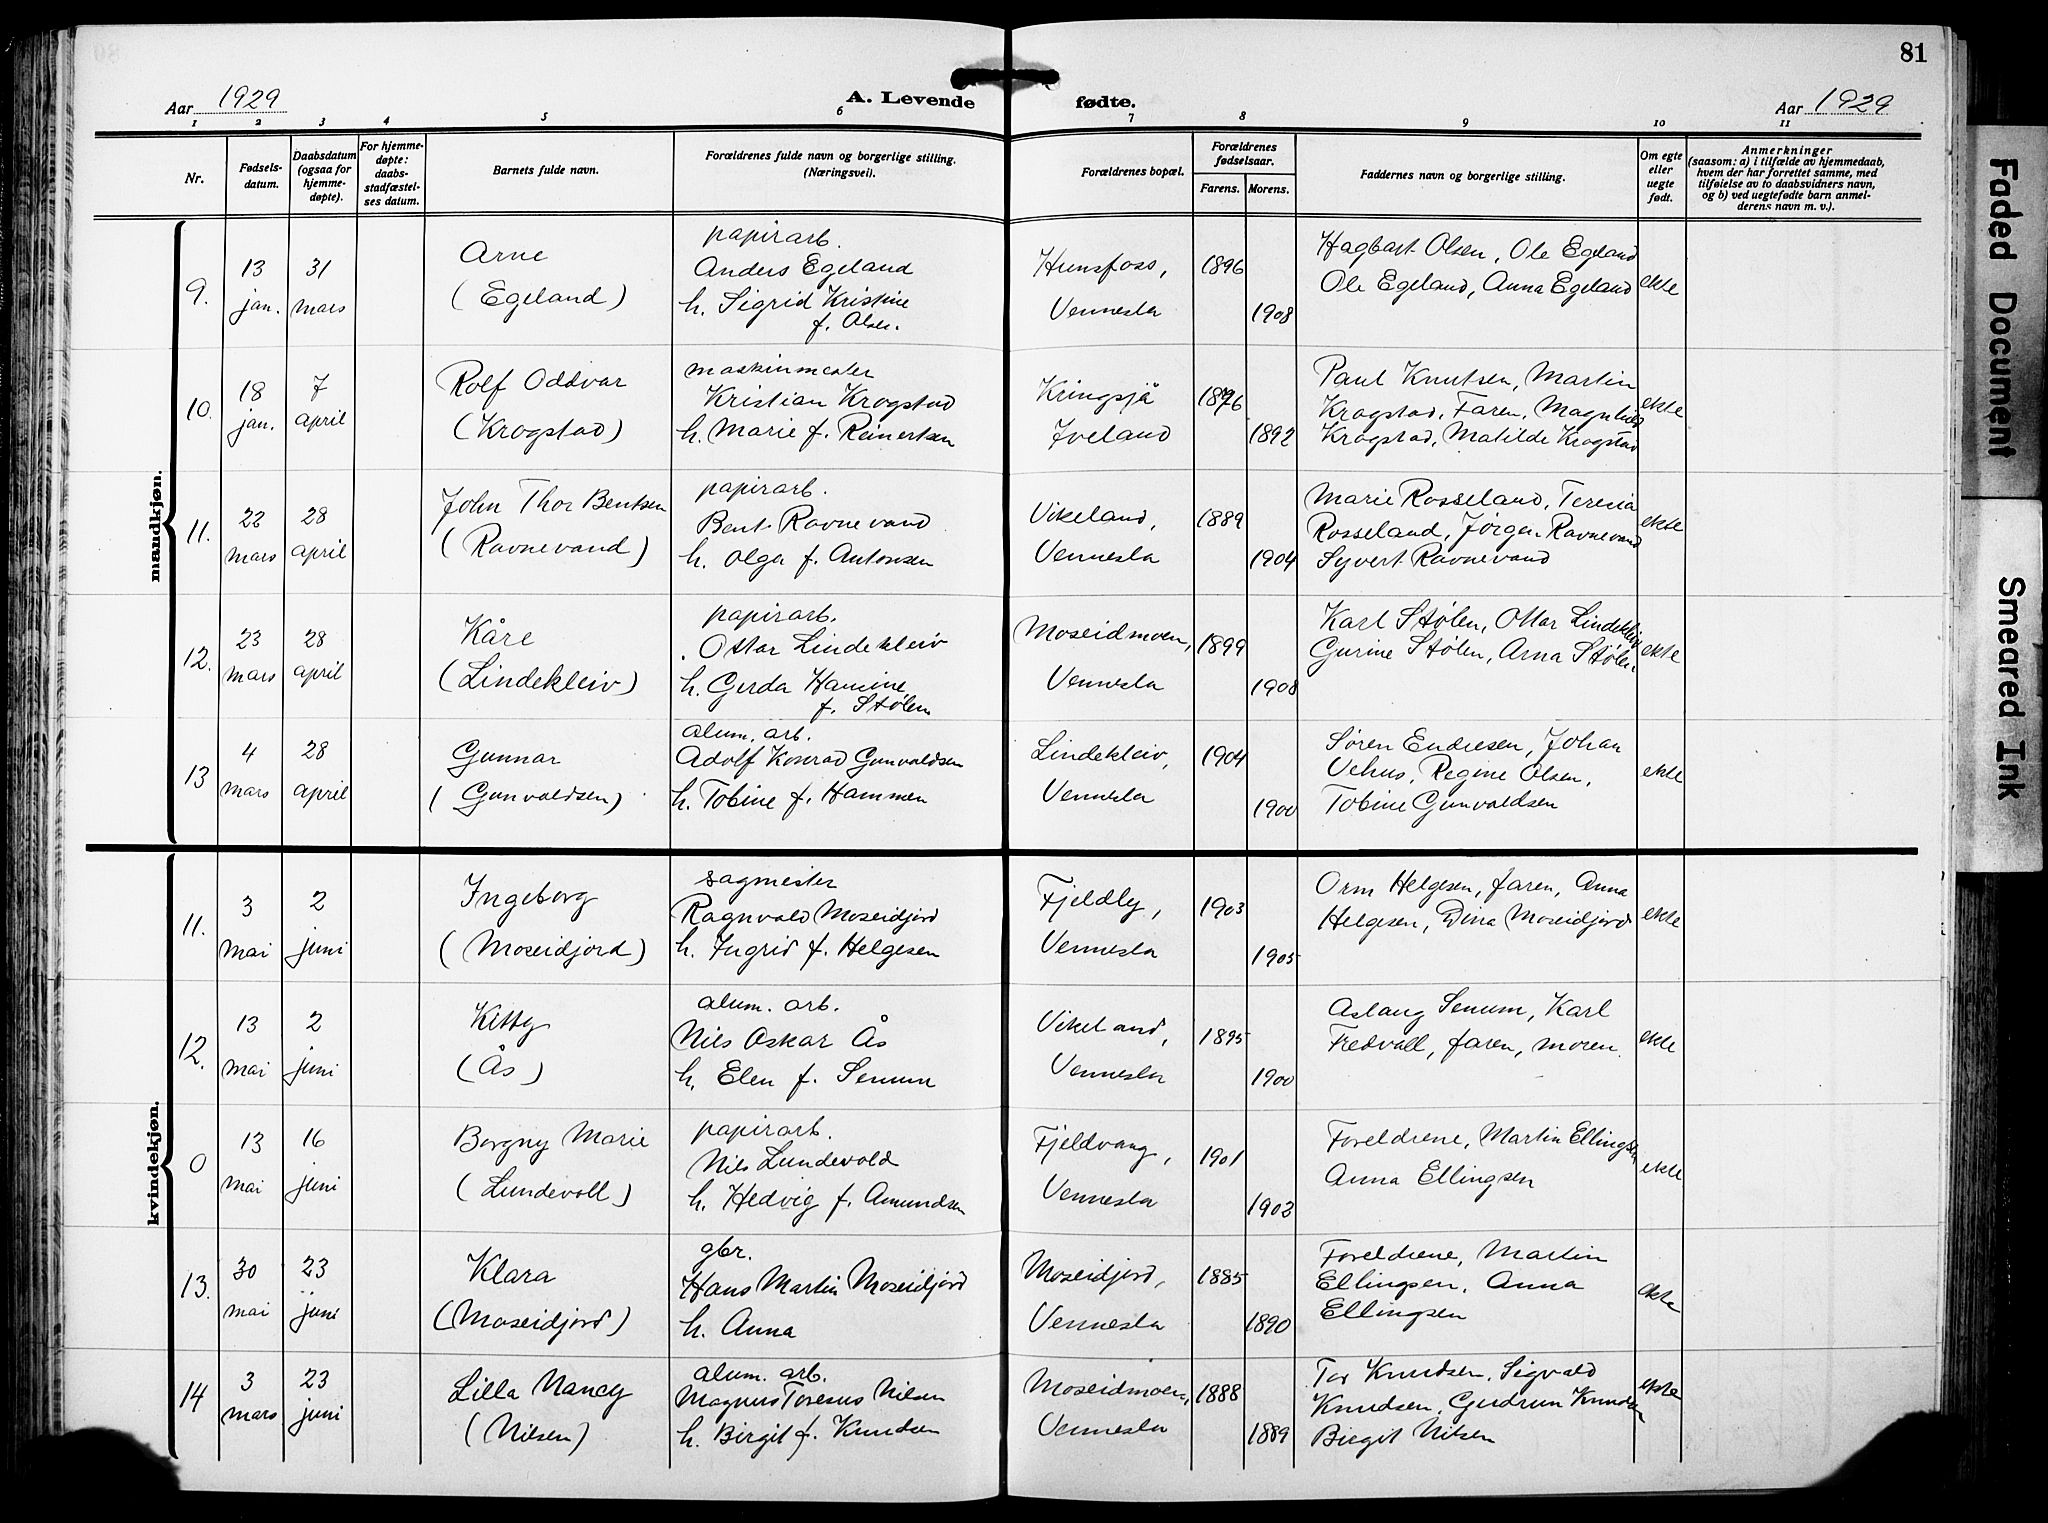 81
Aar 1929
A. Levende fødte.
Aar 1929
1 2 3 4 5 6 7 8 9 10 11
Nr.
Fødsels-
datum.
Daabsdatum
(ogsaa for
hjemme-
døpte).
For hjemme-
døpte:
daabs-
stadfæstel-
ses datum.
Barnets fulde navn.
Forældrenes fulde navn og borgerlige stilling.
(Næringsvei).
Forældrenes bopæl.
Forældrenes
fødselsaar.
Farens. Morens.
Faddernes navn og borgerlige stilling.
Om egte
eller
uegte
født.
Anmerkninger
(saasom: a) i tilfælde av hjemmedaab,
hvem der har forrettet samme, med
tilføielse av to daabsvidners navn,
og b) ved uegtefødte barn anmel-
derens navn m. v.).
mandkjøn.
9.
13
jan.
31
mars
Arne
(Egeland)
papirarb.
Anders Egeland
h. Sigrid Kristine
f. Olsen.
Hunsfoss,
Vennesla
1896
1908
Hagbart Olsen, Ole Egeland
Ole Egeland, Anna Egeland
ekte
10.
18
jan.
7
april
Rolf Oddvar
(Krogstad)
maskinmester
Kristian Krogstad
h. Marie f. Reinertsen
Kringsjå
Iveland
1876
1892
Paul Knutsen, Martin
Krogstad, Faren, Magnhild
Krogstad, Matilde Krogstad
ekte
11.
22
mars
28
april
John Thor Bentsen
(Ravnevand)
papirarb.
Bent Ravnevand
h. Olga f. Antonsen
Vikeland,
Vennesla
1889
1904
Marie Rosseland, Teresia
Rosseland, Jørgen Ravnevand
Syvert Ravnevand
ekte
12.
23
mars
28
april
Kåre
(Lindekleiv)
papirarb.
Ottar Lindekleiv
h. Gerda Hamine
f. Stølen
Moseidmoen,
Vennesla
1899
1908
Karl Stølen, Ottar Lindekleiv
Gurine Stølen, Arna Stølen
ekte
13
4
mars
28
april
Gunnar
(Gunvaldsen)
alum. arb.
Adolf Konrad Gunvaldsen
h. Tobine f. Hammen
Lindekleiv,
Vennesla
1904
1900
Søren Endresen, Johan
Vehus, Regine Olsen,
Tobine Gunvaldsen
ekte
kvindekjøn.
11.
3
mai
2
juni
Ingeborg
(Moseidjord)
sagmester
Ragnvald Moseidjord
h. Ingrid f. Helgesen
Fjeldly,
Vennesla
1903
1905
Orm Helgesen, faren, Anna
Helgesen, Dina Moseidjord
ekte
12.
13
mai
2
juni
Kitty
(Ås)
alum. arb.
Nils Oskar Ås
h. Elen f. Senum
Vikeland,
Vennesla
1895
1900
Aslaug Senum, Karl
Fredvall, faren, moren.
ekte
0
13
mai
16
juni
Borgny Marie
(Lundevoll)
papirarb.
Nils Lundevold
h. Hedvig f. Amundsen
Fjeldvang,
Vennesla
1901
1902
Foreldrene, Martin Ellingsen,
Anna Ellingsen
ekte
13.
30
mai
23
juni
Klara
(Moseidjord)
gbr.
Hans Martin Moseidjord
h. Anna
Moseidjord,
Vennesla
1885
1890
Foreldrene, Martin
Ellingsen, Anna
Ellingsen
ekte
14
3
mars
23
juni
Lilla Nancy
(Nilsen)
alum. arb.
Magnus Toresus Nilsen
h. Birgit f. Knudsen
Moseidmoen,
Vennesla
1888
1889
Tor Knudsen, Sigvald
Knudsen, Gudrun Knudsen
Birgit Nilsen
ekte
Faded Document
Smeared Ink